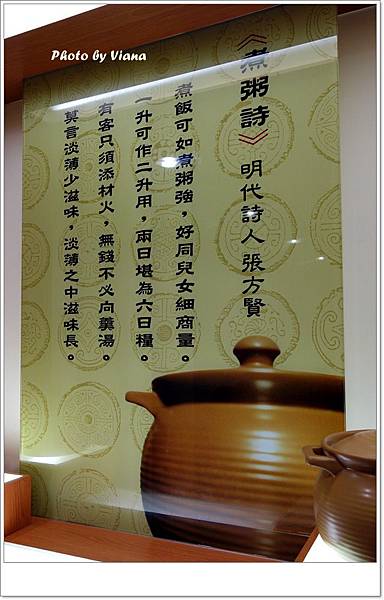 Photo by Viana
《煮粥詩》 明代詩人張方賢
煮飯可如煮粥強，好同兒女細商量。
一升可作二升用，兩日堪為六日糧。
有客只須添材火，無錢不必向羹湯。
莫言淡薄少滋味，淡薄之中滋味長。